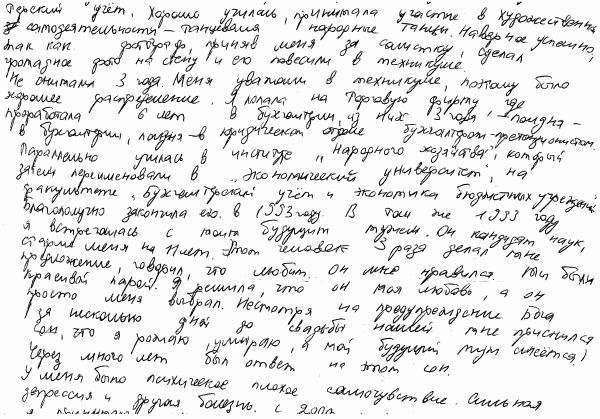 терский учёт. Хорошо училась, принимала участие в художественно
самодеятельности – танцевала народные танцы. Наверное успешно,
так как фотограф, приняв меня за солистку, сделал
громадное фото на стену и его повесили в техникуме.
Не снимали 3 года. Меня уважали в техникуме, потому было
хорошее распределение. Я попала на торговую фирму где
проработала 6 лет в бухгалтрии, из них 3 года
в бухгалтрии, поздня – в юридической отделе бухгалтером-претензионистом.
Параллельно училась в институте „Народного хозяйства", который
затем переименовали в „Экономический университет", на
факультете „Бухгалтерский учёт и экономика бюджетных учреждений
Благополучно закончила его в 1993 году. В том же 1993 году
я встречалась с моим будущим мужем. Он кандидат наук,
старше меня на 11 лет. Этот человек 3 раза делал мне
предложение, говорил, что любит. Он мне нравился. Мы были
красивой парой. Я решила, что он моя любовь, а он
просто меня выбрал. Несмотря на предупреждение Бога
(за несколько дней до свадьбы нашей, мне приснился
сон, что я рожаю, умираю, а мой будущий муж смеётся)
Через много лет был ответ на этот сон.
У меня было психическое плохое самочувствие. Сильная
депрессия и другая болезнь. С